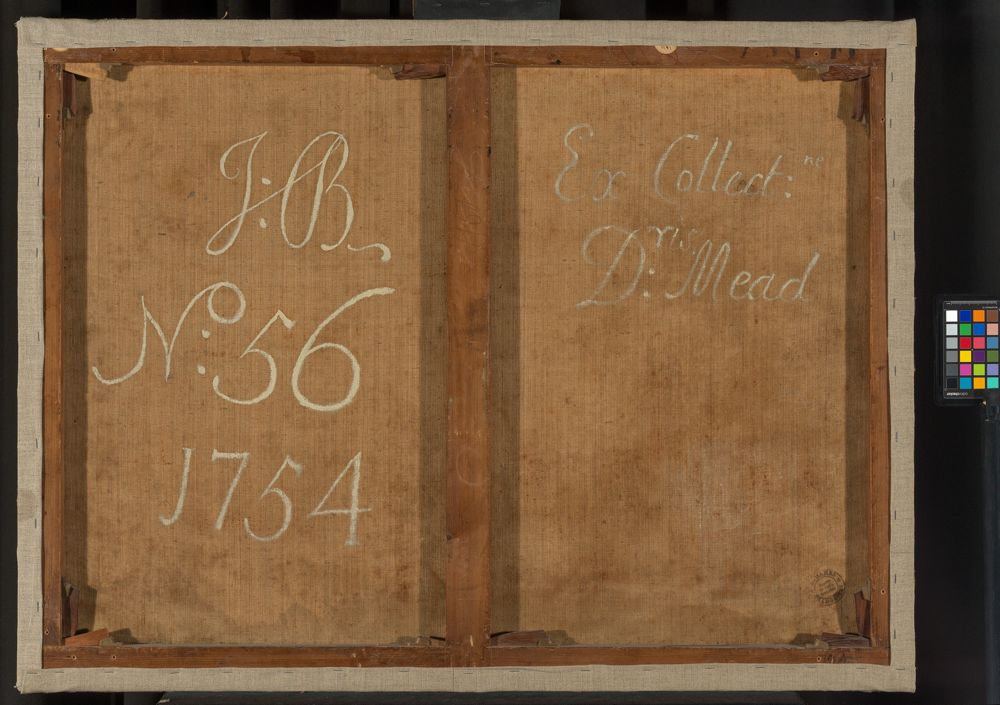 J:B.
N:o 56
1754
Ex Collect:ne
D:ris Mead